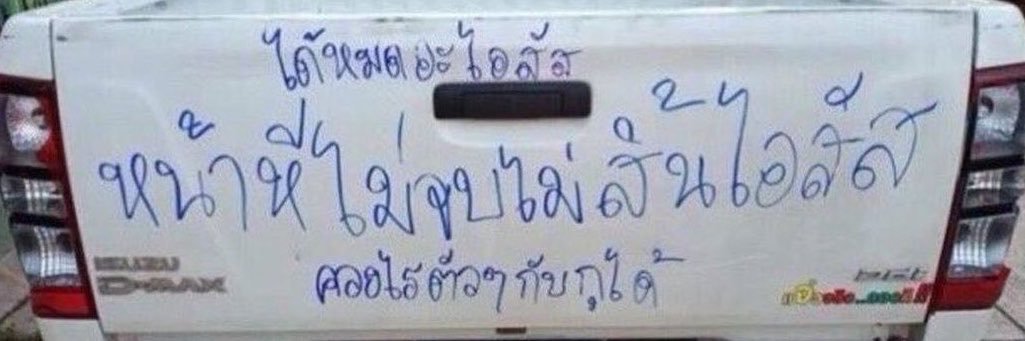 ได้หมดอะไอสัส
หน้าหีไม่จบไม่สิ้นไอสัส
ตัวๆกับกูได้
ISUZU
D-MAX